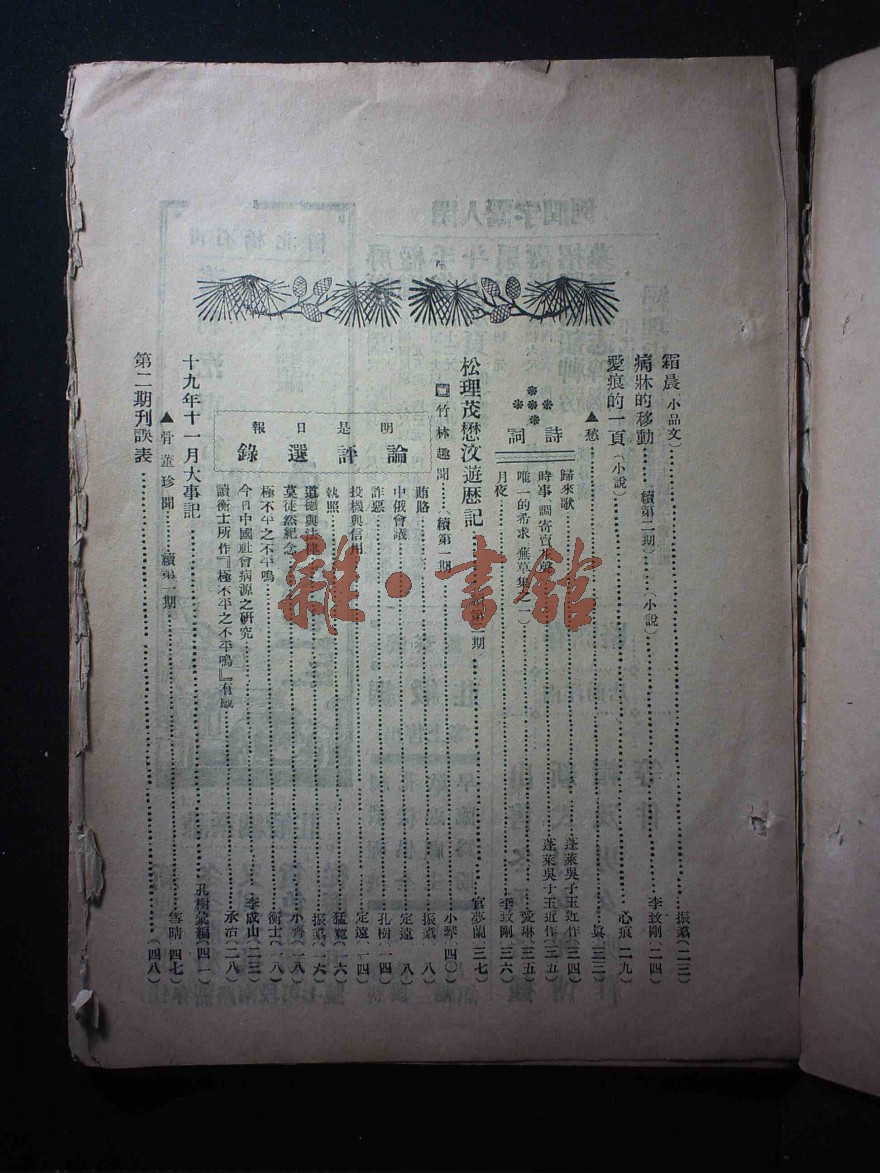 霜晨（小品文）……振翥（二三）
病牀的移動……續第二期）……（小說）……李致剛（二四）
愛痕的一頁（小說）……心痕（二九）
▲愁……（三三）
詩詞
歸來歌……蓬萊吳子玉近作（三四）
時事 調寄賣花聲……蓬萊吳子玉近作（三五）
唯一的希求 蕪草集之一）……愛琳（三五）
月夜……李致剛（三六）
松理茂懋汶遊歷記……期……官夢蘭（三七）
竹林趣聞……（續第一期……小琴（四〇）
明是日報
論評選錄
賄賂……振翥（八）
中俄會議……定遠（八）
詐惡……孔樹（一四）
投機與信用……定遠（一四）
執照……猛寬（一六）
道德與法律……振翥（一六）
莫徒然紀念……小齊（一八）
極不平之不平鳴……衡士（一八）
今日中國社會病源之研究……李成山（二三）
讀衡士所作『極不平之不平鳴』有感……承治（二八）
十九年十一月大事記……孔樹彙編（四一）
▲骨董珍聞……續第一期……雪晴（四七）
第二期刊誤表……（四八）
雜·書館